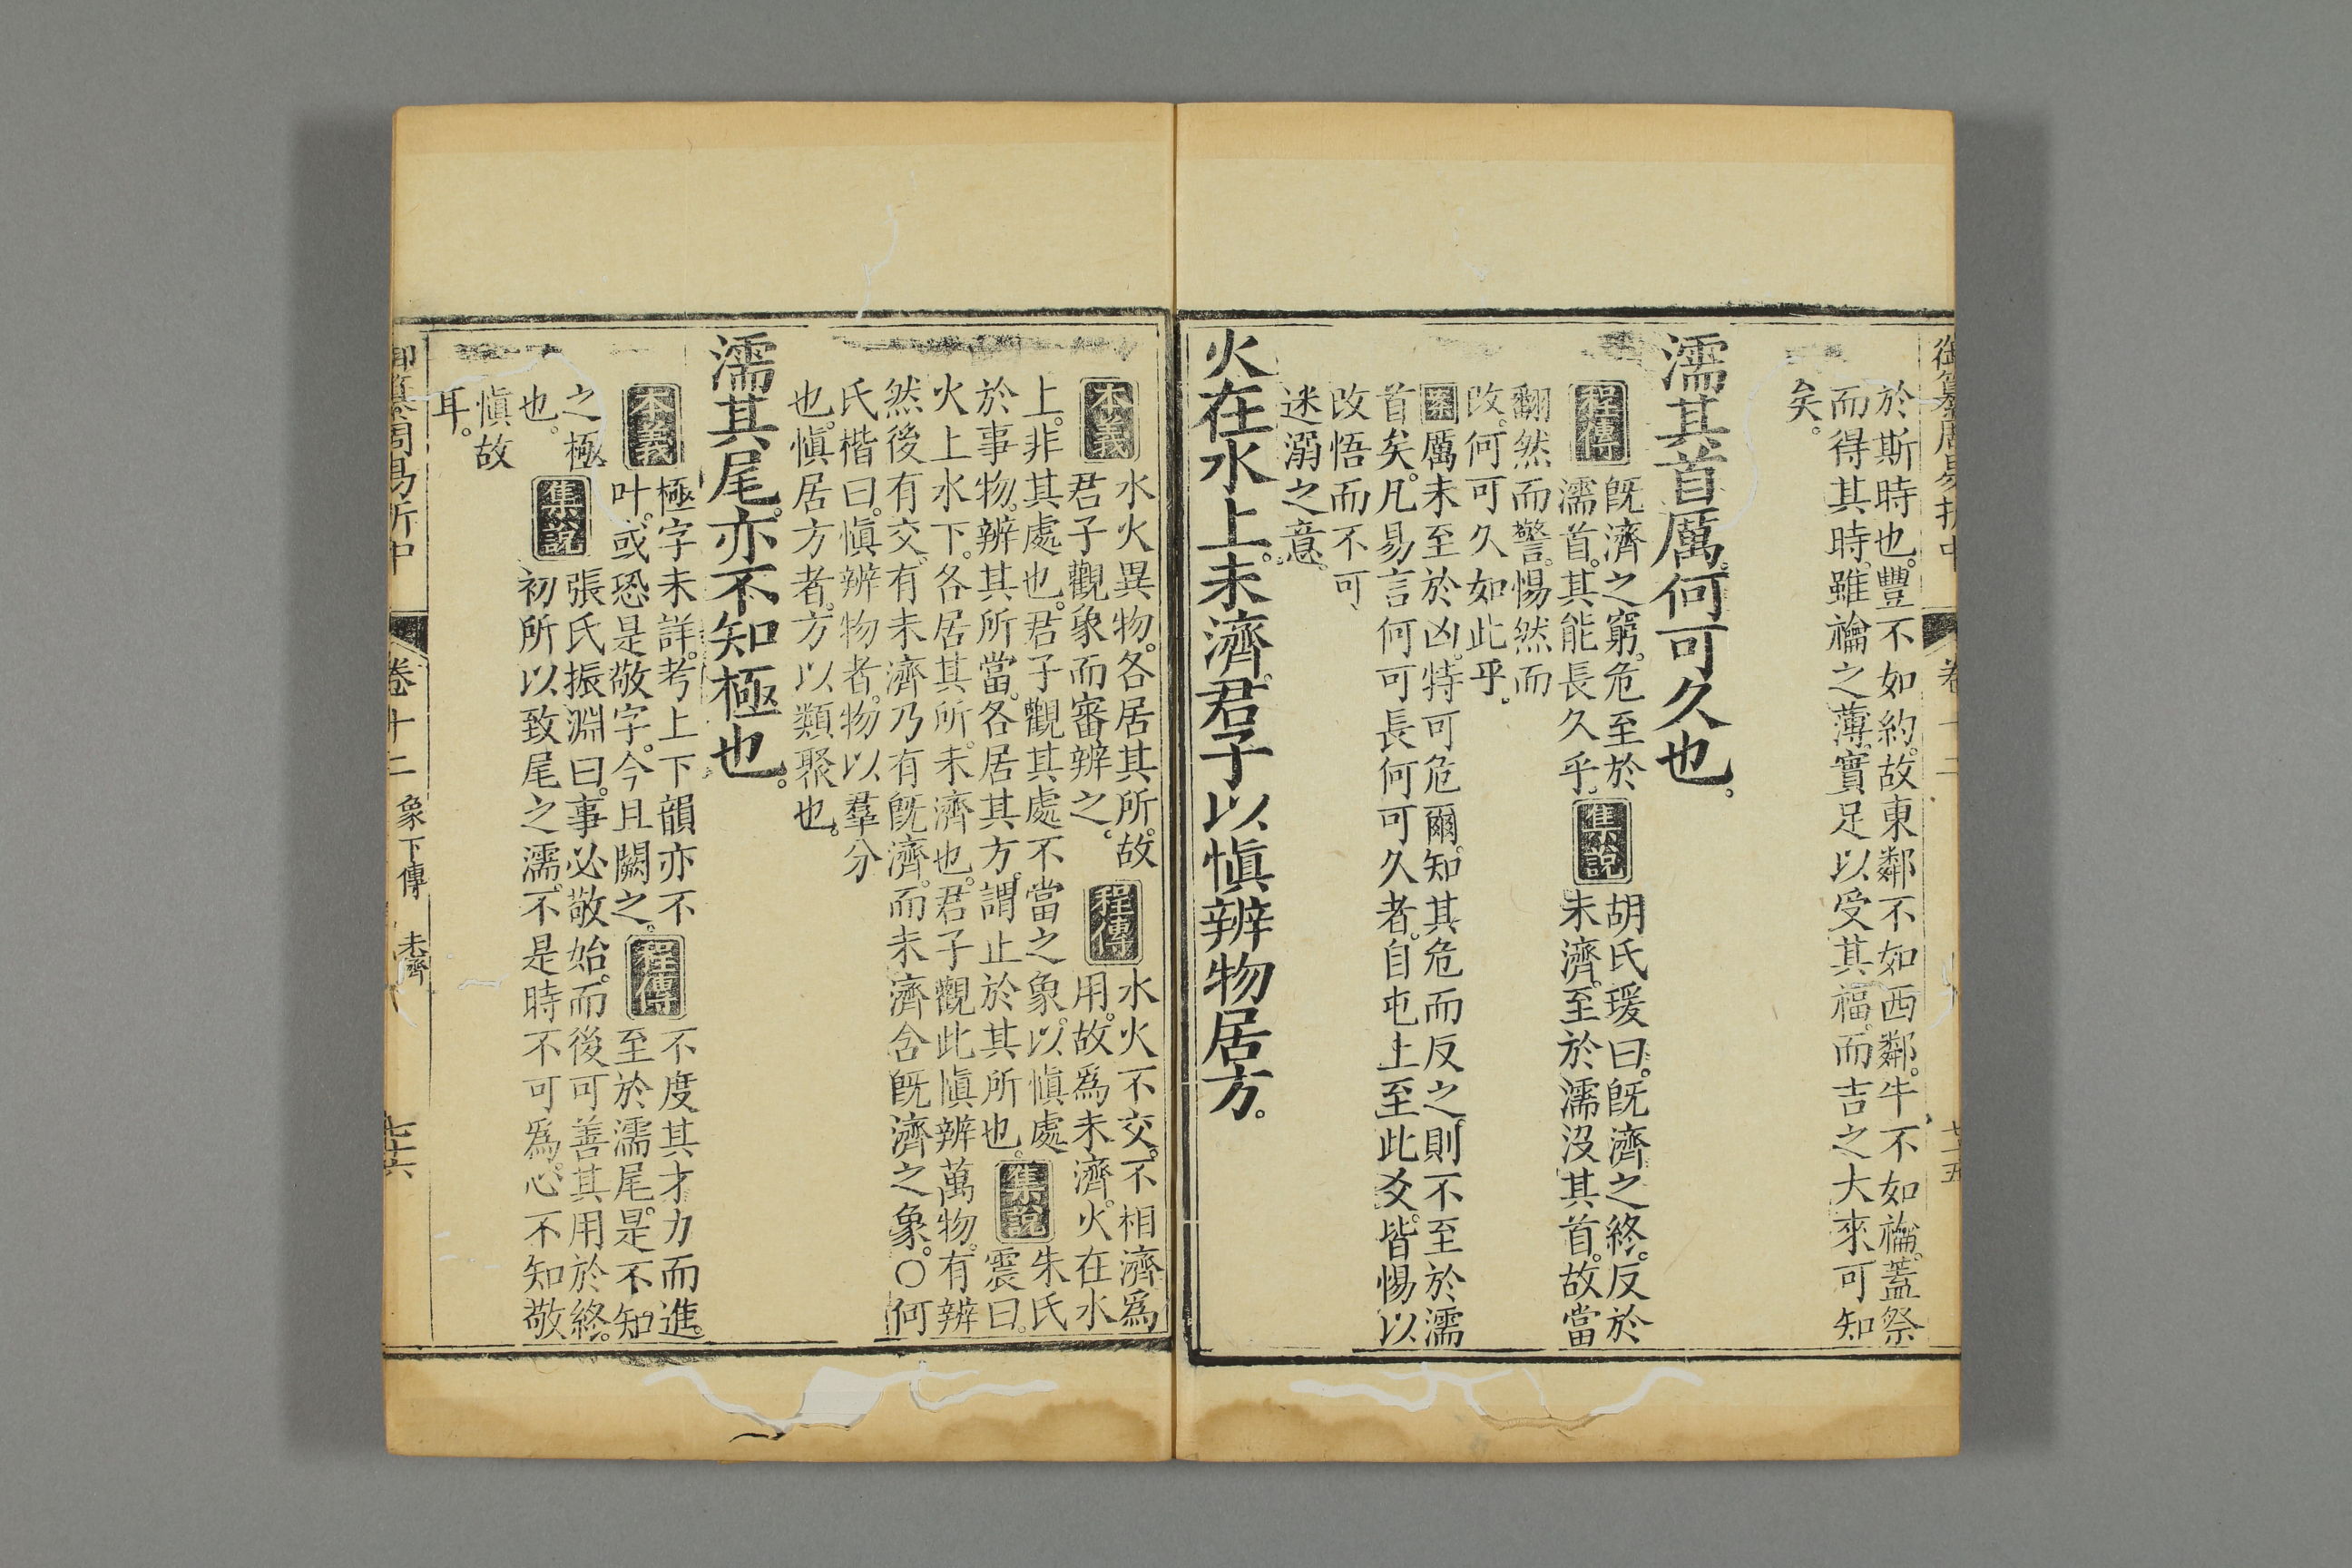 御纂周易折中 卷十二 七十五
於斯時也。豐不如約。故東鄰不如西鄰。牛不如禴。蓋祭
而得其時。雖禴之薄。實足以受其福。而吉之大來可知
矣。
濡其首厲。何可久也。
程傳
既濟之窮。危至於
濡首。其能長久乎。
集說
胡氏瑗曰。既濟之終。反於
未濟。至於濡沒其首。故當
翻然而警。惕然而
改。何可久如此乎。
案厲未至於凶。特可危爾。知其危而反之。則不至於濡
首矣。凡易言何可長何可久者。自屯上至此爻。皆惕以
改悟而不可
迷溺之意。
火在水上。未濟。君子以慎辨物居方。
本義
水火異物。各居其所。故
君子觀象而審辨之。
程傳
水火不交。不相濟爲
用。故爲未濟。火在水
上。非其處也。君子觀其處不當之象。以慎處
於事物。辨其所當。各居其方。謂止於其所也。
集說
朱氏
震曰。
火上水下。各居其所。未濟也。君子觀此慎辨萬物。有辨
然後有交。有未濟乃有既濟。而未濟含既濟之象。○何
氏楷曰。慎辨物者。物以羣分
也。慎居方者。方以類聚也。
濡其尾。亦不知極也。
本義
極字未詳。考上下韻亦不
叶。或恐是敬字。今且闕之。
程傳
不度其才力而進。
至於濡尾。是不知
之極
也。
集說
張氏振淵曰。事必敬始。而後可善其用於終。
初所以致尾之濡。不是時不可爲。心不知敬
慎故
耳。
御纂周易折中 卷十二 象下傳 未濟 七十六